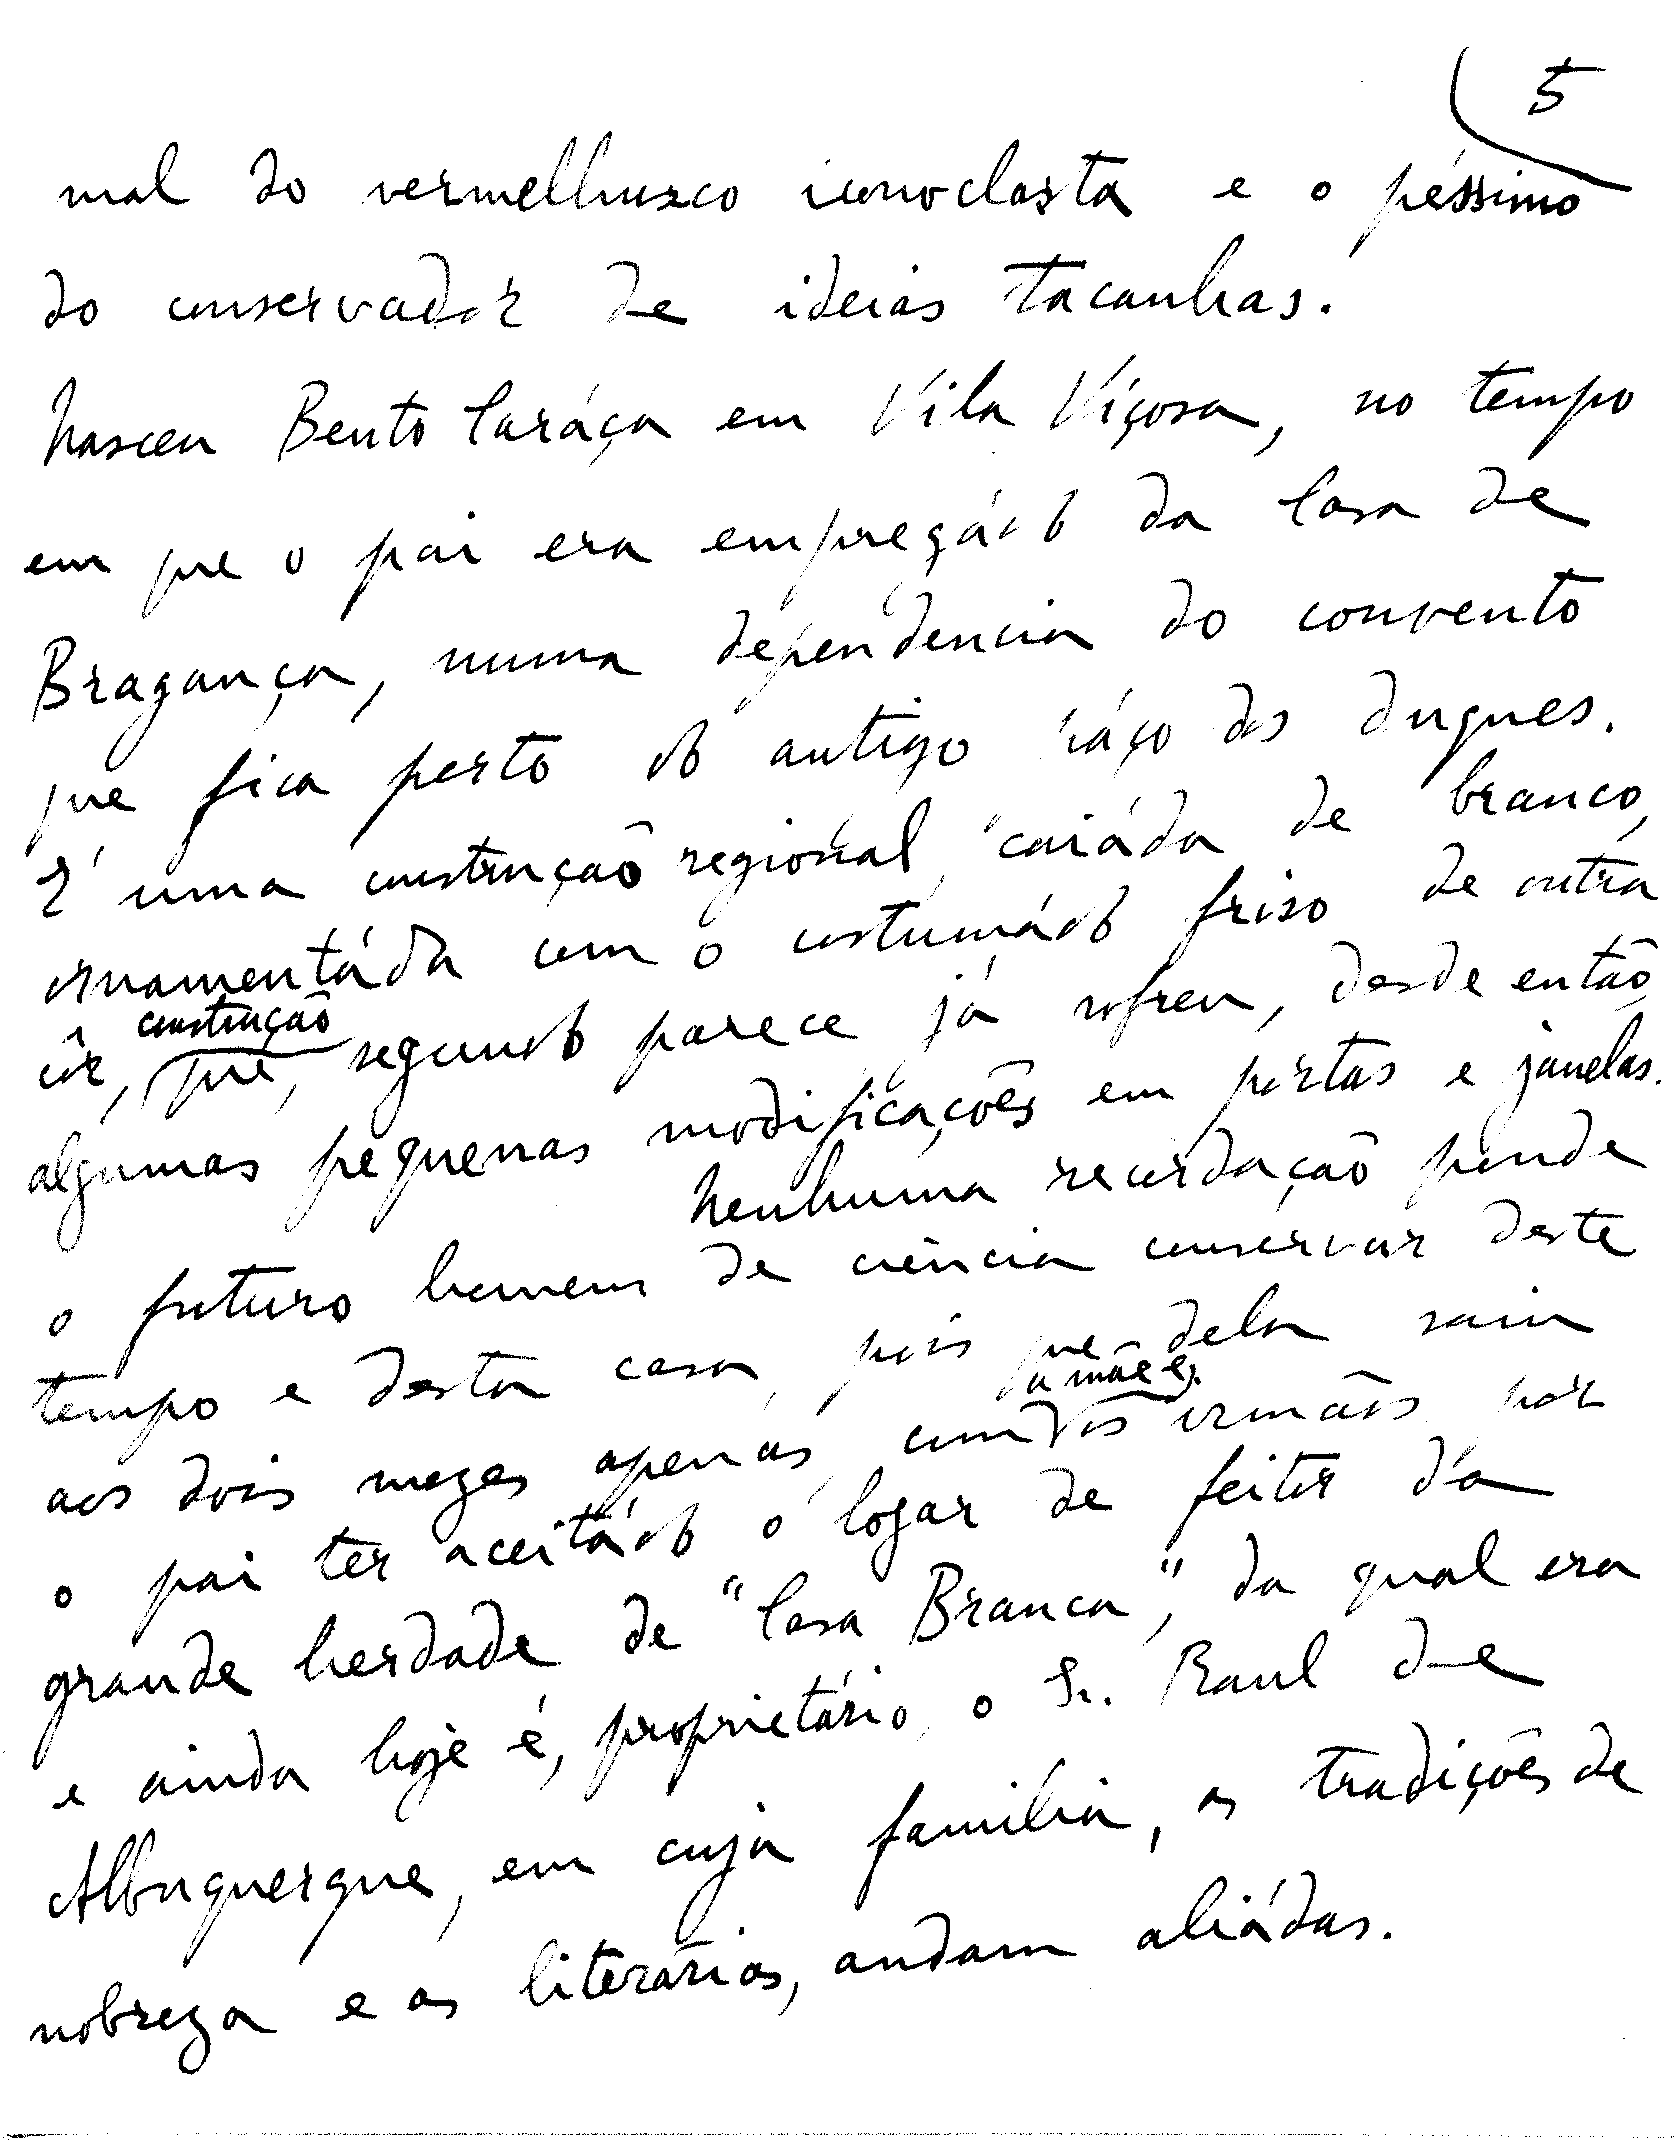 5
mal do vermelhusco iconoclasta e o péssimo
do conservador de ideias tacanhas.
Nasceu Bento Caráça em Vila Viçosa, no tempo
em que o pai era empregádo da Casa de
Bragança, numa dependencia do convento
que fica perto do antigo páço dos duques.
E' uma construção regional, caiáda de branco,
ornamentáda com o costumádo friso de outra
côr, construção que, segundo parece já sofreu, desde então,
algumas pequenas modificações em portas e janelas.
Nenhuma recordação poude
o futuro homem de ciência conservar deste
tempo e desta casa, pois que dela saiu
aos dois mezes apenas, com a mãe e os irmãos por
o pai ter aceitádo o logar de feitor da
grande herdade de "Casa Branca", da qual era
e ainda hoje é, proprietário, o Sr. Raul de
Albuquerque, em cuja familia, as tradições de
nobreza e as literárias, andam aliádas.